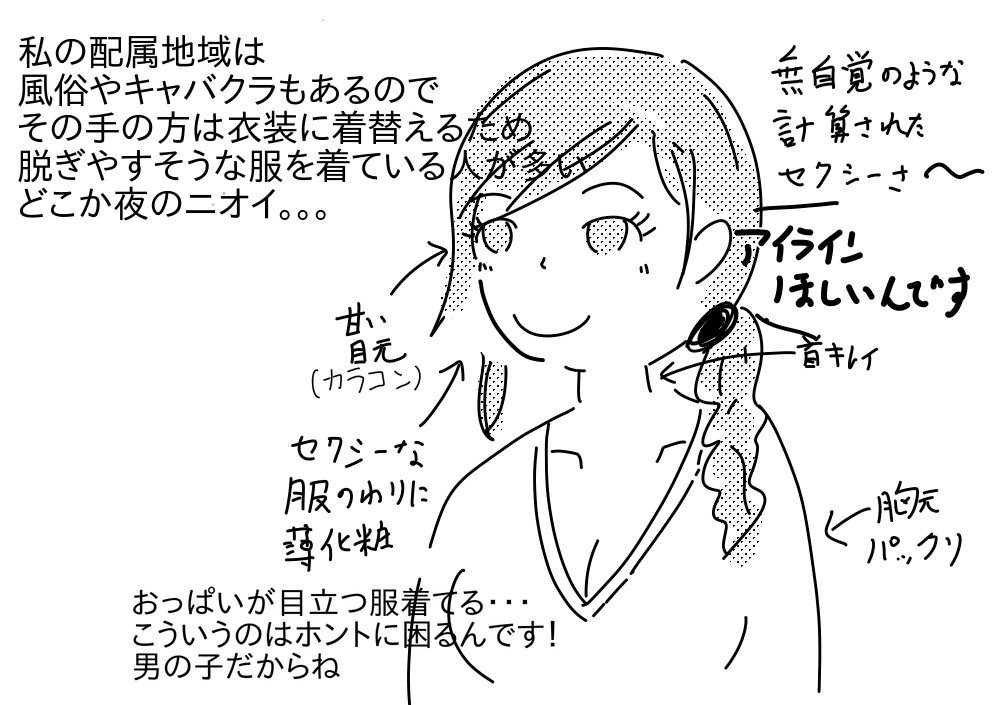 私の配属地域は
風俗やキャバクラもあるので
その手の方は衣装に着替えるため
脱ぎやすそうな服を着ている人が多い
どこか夜のニオイ。。。
無自覚のような
計算された
セクシーさ〜
アイライン
ほしいんです
甘い
目元
(カラコン)
首キレイ
セクシーな
服のわりに
薄化粧
胸元
パックリ
おっぱいが目立つ服着てる・・・
こういうのはホントに困るんです!
男の子だからね